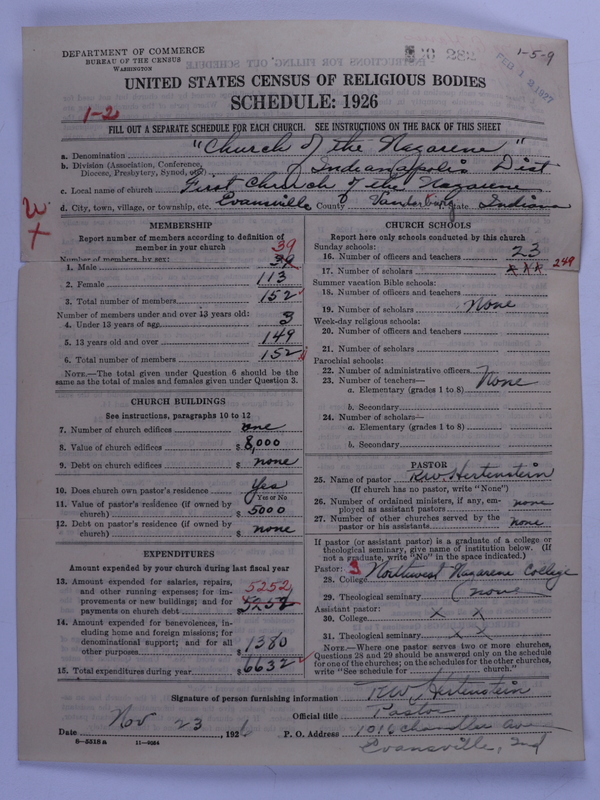 DEPARTMENT OF COMMERCE
BUREAU OF THE CENSUS
WASHINGTON
1-5-9
FEB 1 1927
UNITED STATES CENSUS OF RELIGIOUS BODIES
SCHEDULE: 1926
1-2
FILL OUT A SEPARATE SCHEDULE FOR EACH CHURCH. SEE INSTRUCTIONS ON THE BACK OF THIS SHEET
a. Denomination "Church of the Nazarene"
b. Division (Association, Conference, Diocese, Presbytery, Synod, etc.) Indianapolis Dist
c. Local name of church First Church of the Nazarene
d. City, town, village, or township, etc. Evansville County Vanderburg State Indiana
MEMBERSHIP
Report number of members according to definition of member in your church
Number of members by sex:
1. Male 39
2. Female 113
3. Total number of members 152
Number of members under and over 13 years old:
4. Under 13 years of age 3
5. 13 years old and over 149
6. Total number of members 152
NOTE.—The total given under Question 6 should be the same as the total of males and females given under Question 3.
CHURCH BUILDINGS
See instructions, paragraphs 10 to 12
7. Number of church edifices one
8. Value of church edifices $ 8,000
9. Debt on church edifices $ none
10. Does church own pastor's residence Yes
Yes or No
11. Value of pastor's residence (if owned by church) $ 5000
12. Debt on pastor's residence (if owned by church) $ none
EXPENDITURES
Amount expended by your church during last fiscal year
13. Amount expended for salaries, repairs, and other running expenses; for improvements or new buildings; and for payments on church debt 5252
$ 5252
14. Amount expended for benevolences, including home and foreign missions; for denominational support; and for all other purposes $ 1380
15. Total expenditures during year $ 6632
CHURCH SCHOOLS
Report here only schools conducted by this church
Sunday schools:
16. Number of officers and teachers 23
17. Number of scholars 249
Summer vacation Bible schools:
18. Number of officers and teachers
19. Number of scholars None
Week-day religious schools:
20. Number of officers and teachers
21. Number of scholars
Parochial schools:
22. Number of administrative officers
23. Number of teachers— None
a. Elementary (grades 1 to 8)
b. Secondary
24. Number of scholars—
a. Elementary (grades 1 to 8)
b. Secondary
PASTOR
25. Name of pastor R.W. Hertenstein
(If church has no pastor, write "None")
26. Number of ordained ministers, if any, employed as assistant pastors none
27. Number of other churches served by the pastor or his assistants none
If pastor (or assistant pastor) is a graduate of a college or theological seminary, give name of institution below. (If not a graduate, write "No" in the space indicated.)
Pastor: 3
28. College Northwest Nazarene College
29. Theological seminary none
Assistant pastor:
30. College x x
31. Theological seminary x x
NOTE.—Where one pastor serves two or more churches, Questions 28 and 29 should be answered only on the schedule for one of the churches; on the schedules for the other churches, write "See schedule for church."
Signature of person furnishing information R.W. Hertenstein
Official title Pastor
Date Nov 23, 1926 P. O. Address 1010 Chandler Ave
Evansville, Ind
6-5518a 11-9054